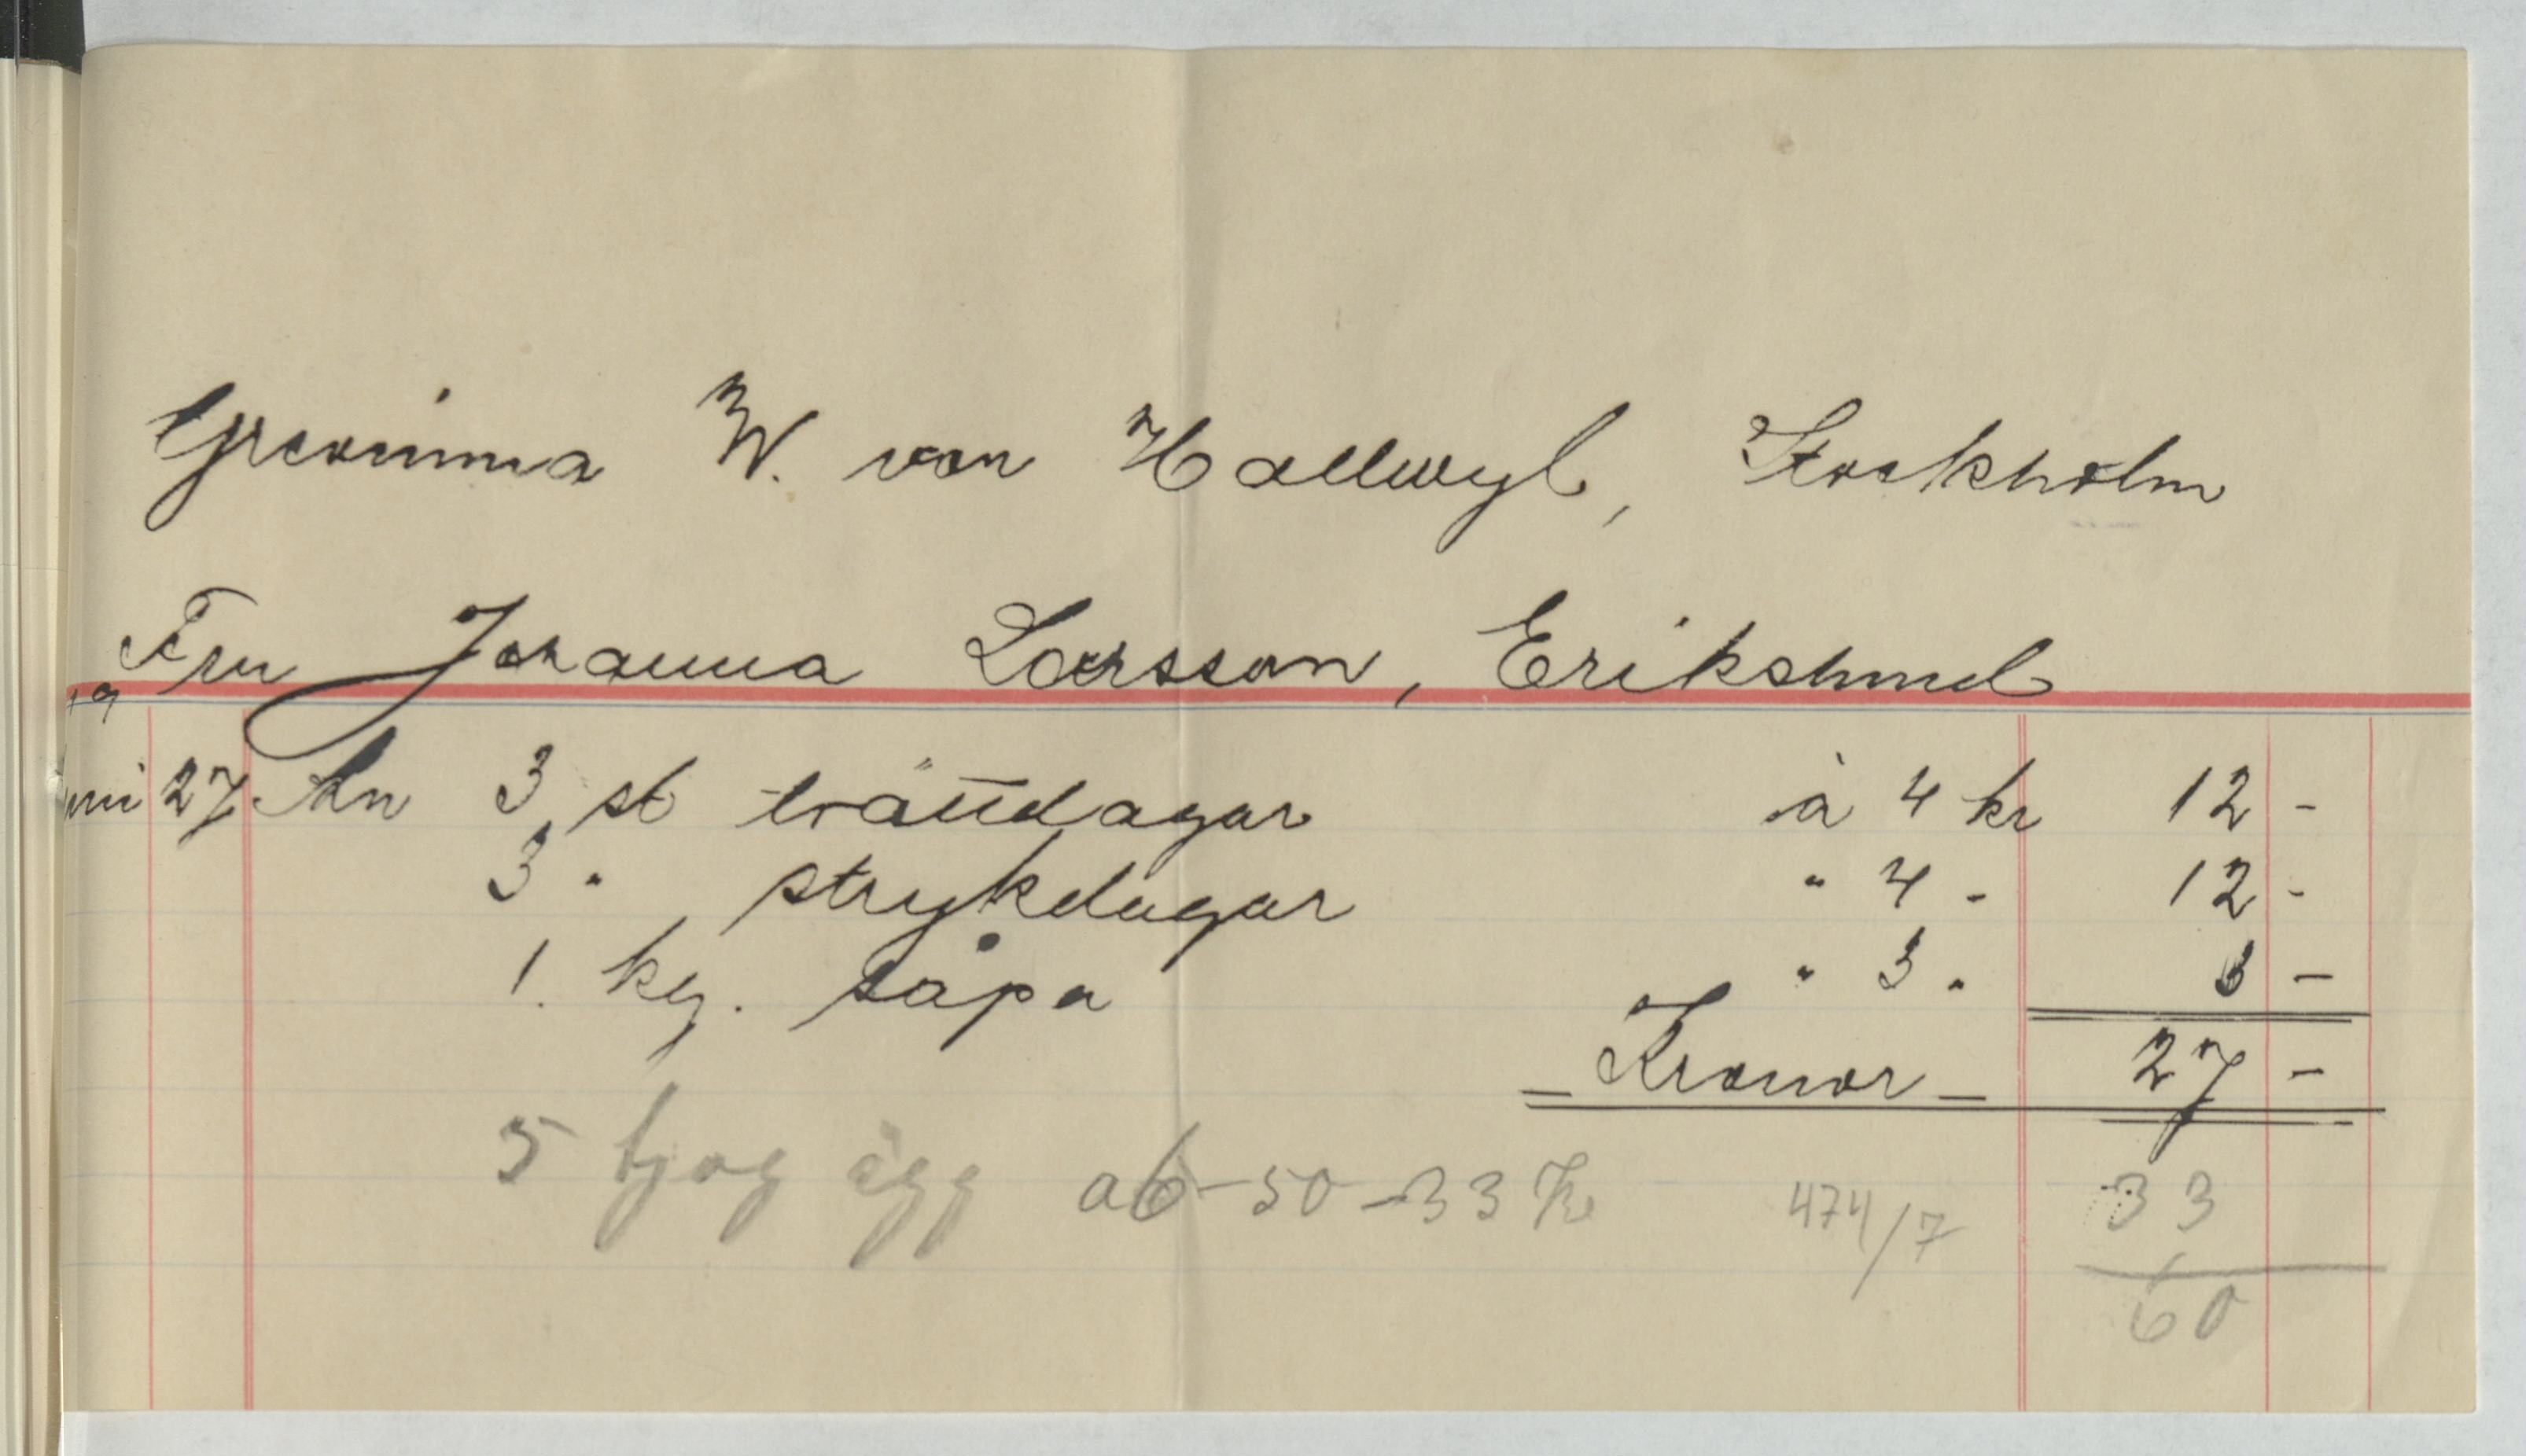 Grevinna W. von Hallwyl, Stockholm
Fru Johanna Larsson, Erikslund
19
juni 27 An 3 st tvättdagar à 4 kr 12 -
3 " strykdagar " 4 - 12 -
1. kg. såpa " 3 " 3 -
Kronor 27 -
5 tjog ägg a 6-50-33 Kr 474/7 33
60